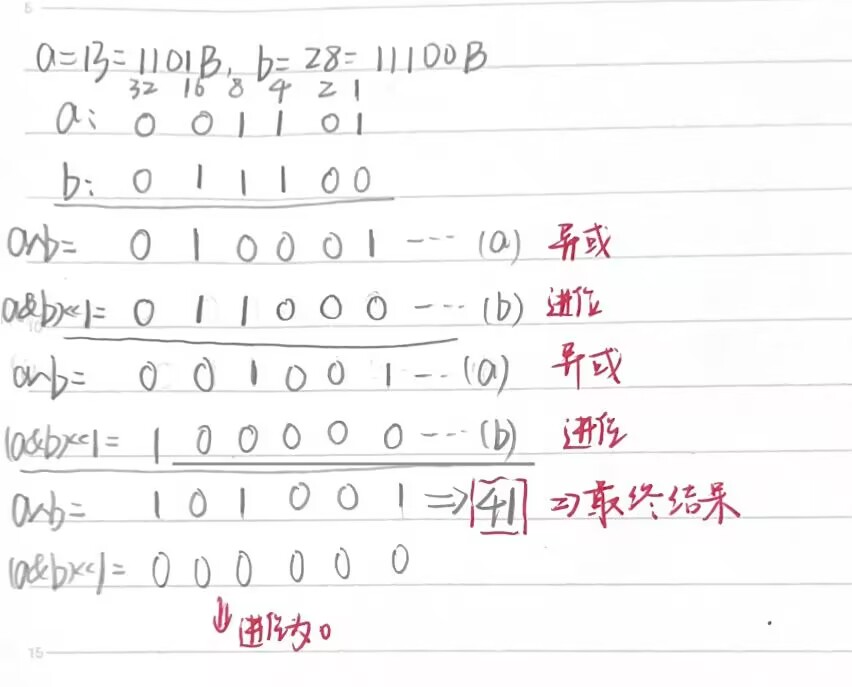 5
a=13=1101B, b=28=11100B
32 16 8 4 2 1
a: 0 0 1 1 0 1
b: 0 1 1 1 0 0
a^b= 0 1 0 0 0 1 --- (a) 异或
(a&b)<<1= 0 1 1 0 0 0 --- (b) 进位
10
a^b= 0 0 1 0 0 1 --- (a) 异或
(a&b)<<1= 1 0 0 0 0 0 --- (b) 进位
a^b= 1 0 1 0 0 1 => 41 => 最终结果
(a&b)<<1= 0 0 0 0 0 0
⇓ 进位为0
15